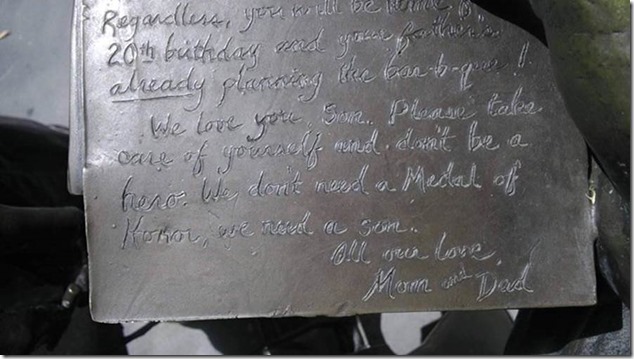 Regardless, you will be home by
20th birthday and your father's
already planning the bar-b-que!
We love you Son. Please take
care of yourself and don't be a
hero. We don't need a Medal of
Honor, we need a son.
All our love,
Mom and Dad